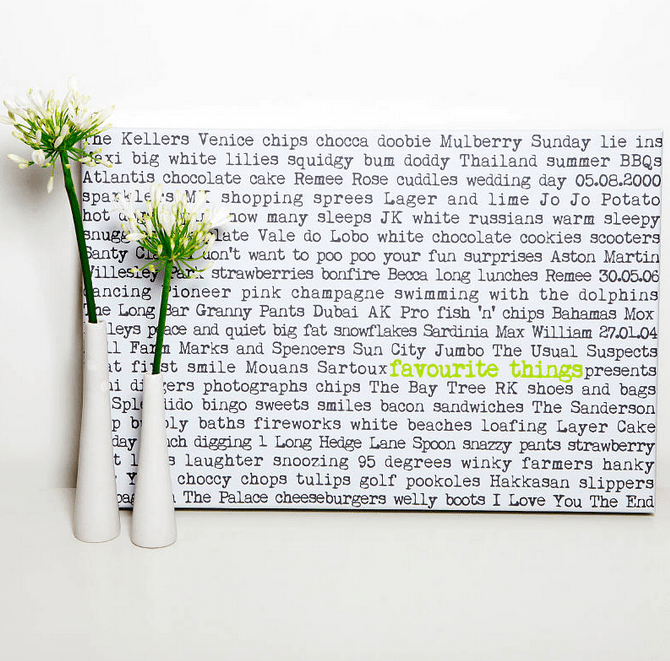 The Kellers Venice chips chocca doobie Mulberry Sunday lie ins
big white lilies squidgy bum doddy Thailand summer BBQs
Atlantis chocolate cake Remee Rose cuddles wedding day 05.08.2000
sparklers shopping sprees Lager and lime Jo Jo Potato
hot how many sleeps JK white russians warm sleepy
Vale do Lobo white chocolate cookies scooters
don't want to poo poo your fun surprises Aston Martin
Willesley Park strawberries bonfire Becca long lunches Remee 30.05.06
dancing Pioneer pink champagne swimming with the dolphins
The Long Bar Granny Pants Dubai AK Pro fish 'n' chips Bahamas Mox
peace and quiet big fat snowflakes Sardinia Max William 27.01.04
Farm Marks and Spencers Sun City Jumbo The Usual Suspects
first smile Mouans Sartoux favourite things presents
photographs chips The Bay Tree RK shoes and bags
bingo sweets smiles bacon sandwiches The Sanderson
bubbly baths fireworks white beaches loafing Layer Cake
digging 1 Long Hedge Lane Spoon snazzy pants strawberry
laughter snoozing 95 degrees winky farmers hanky
choccy chops tulips golf pookoles Hakkasan slippers
The Palace cheeseburgers welly boots I Love You The End